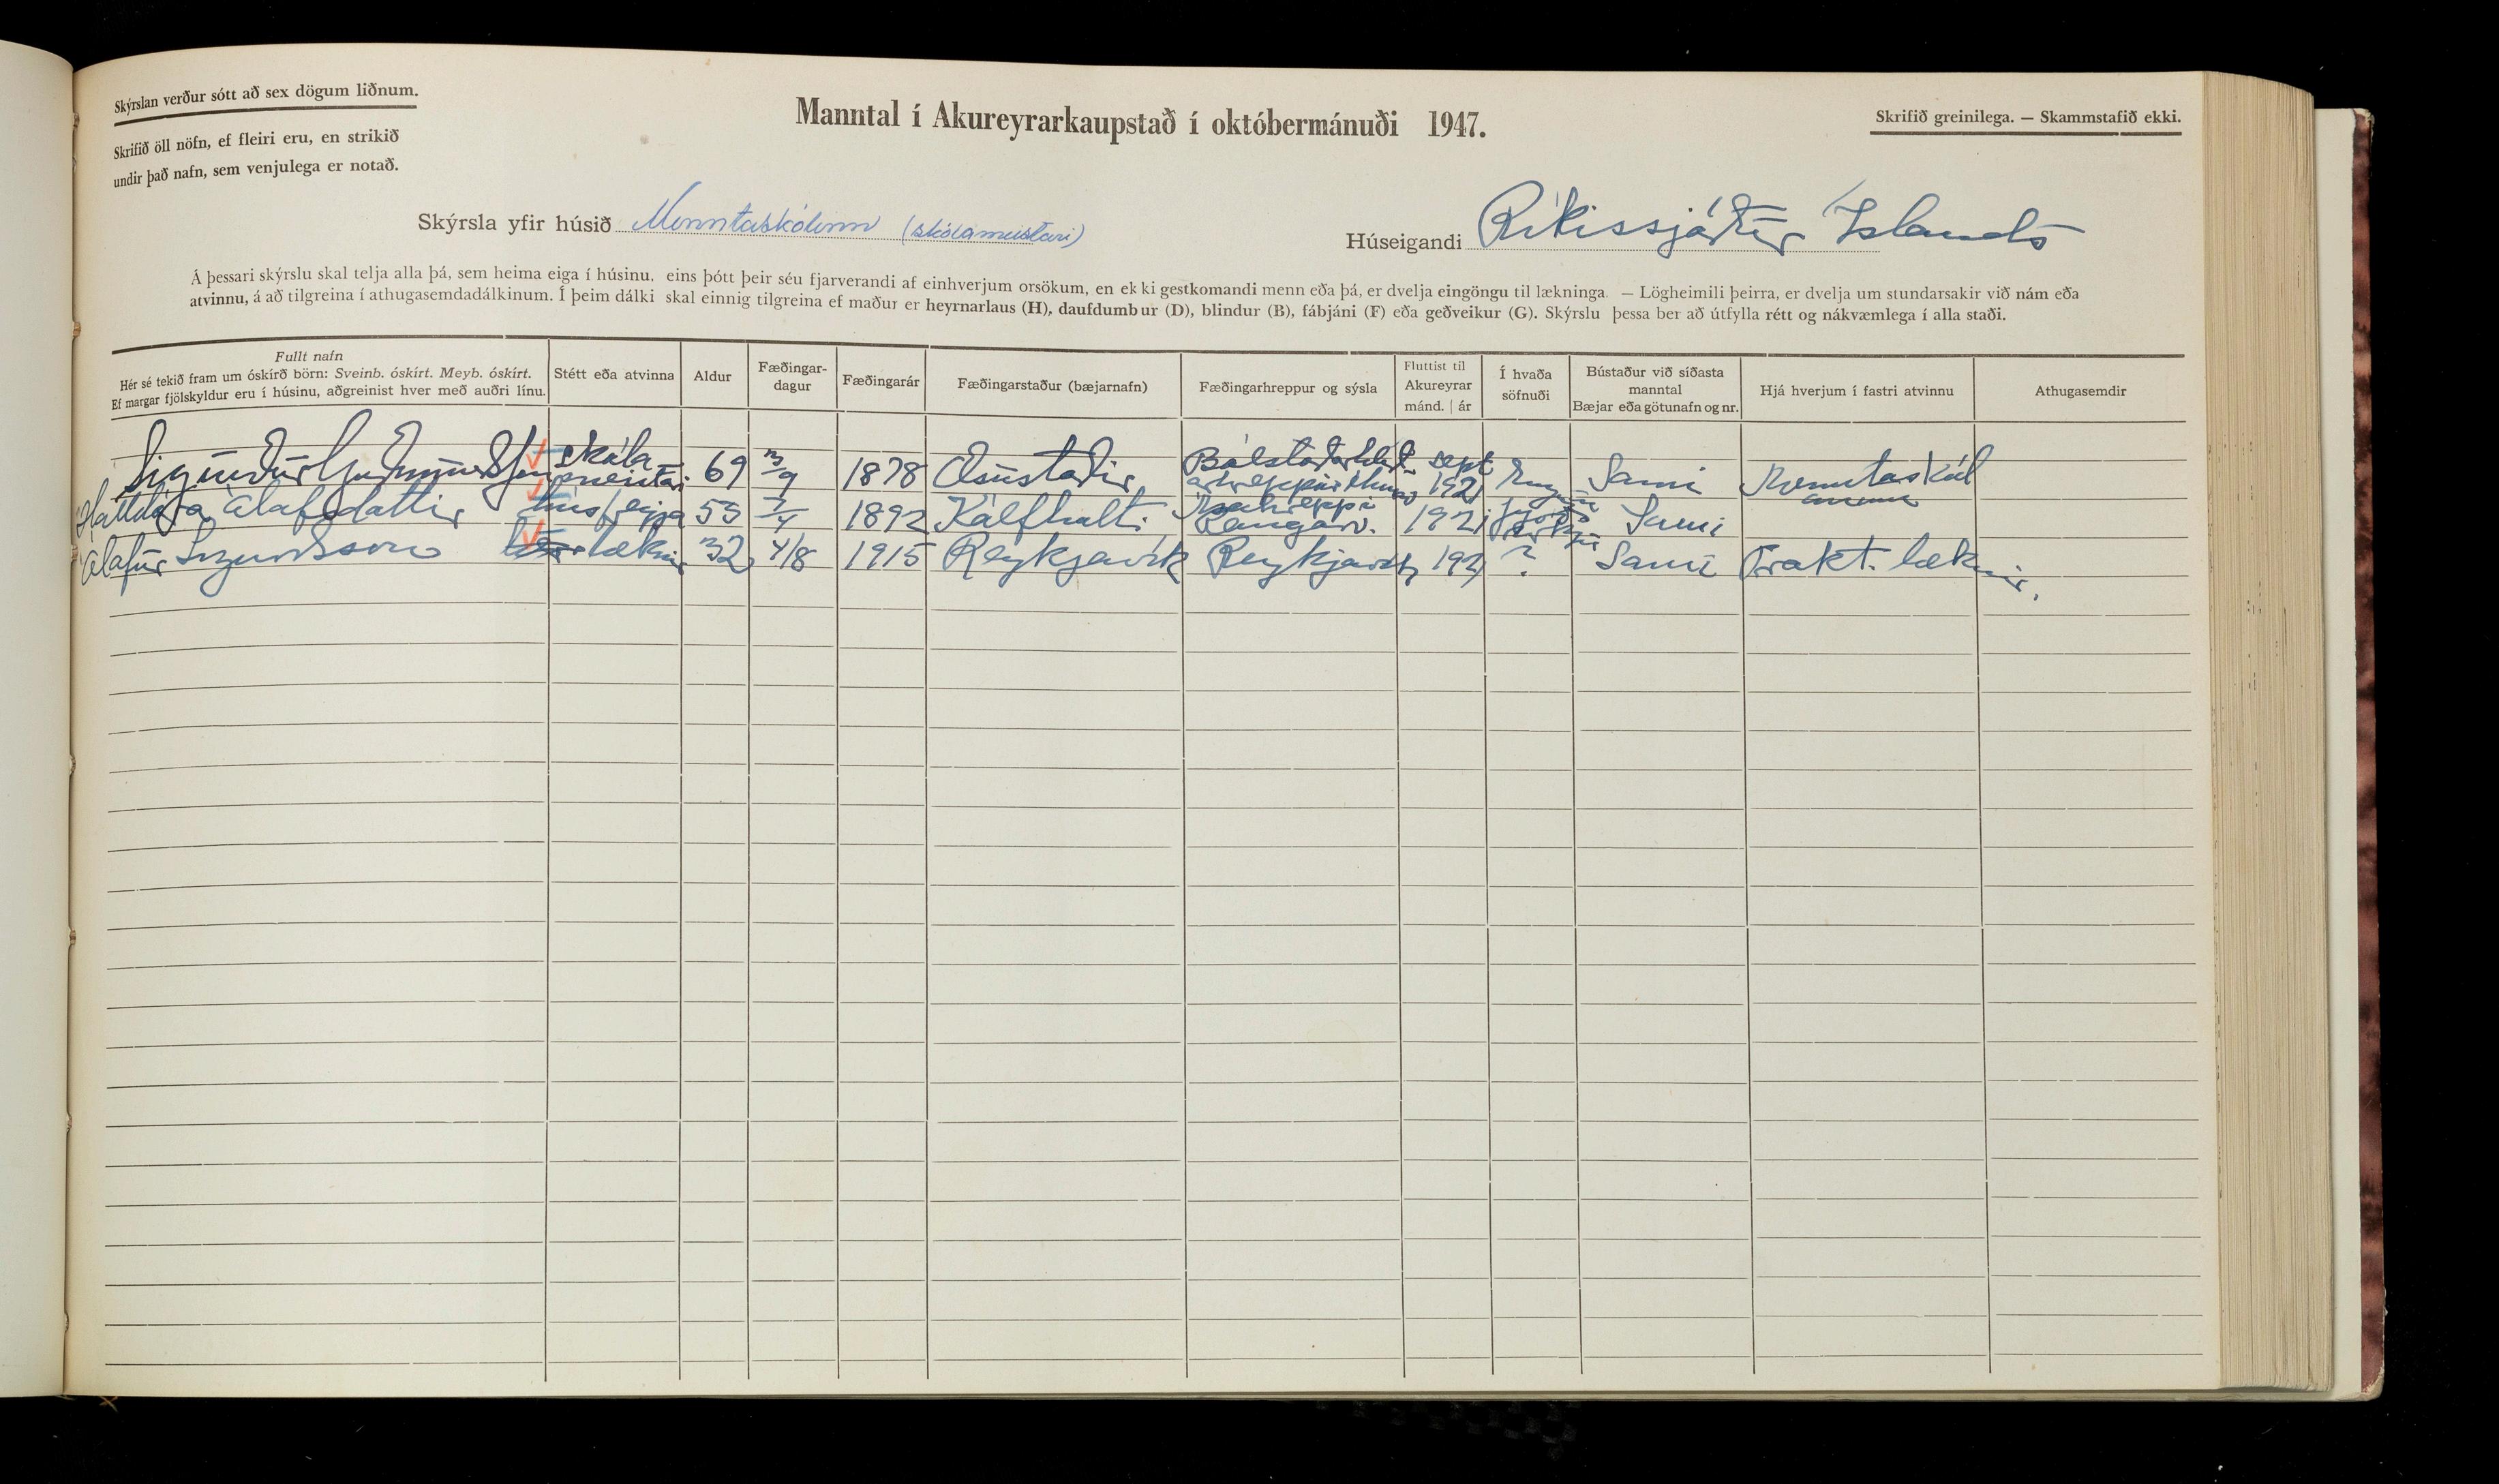 Skýrslan verður sótt að sex dögum liðnum.
Skrifið öll nöfn, ef fleiri eru, en strikið
undir það nafn, sem venjulega er notað.
Manntal í Akureyrarkaupstað í októbermánuði 1947.
Skrifið greinilega. — Skammstafið ekki.
Skýrsla yfir húsið Menntaskólinn (skólameistari)
Húseigandi Ríkissjóður Íslands
Á þessari skýrslu skal telja alla þá, sem heima eiga í húsinu, eins þótt þeir séu fjarverandi af einhverjum orsökum, en ekki gestkomandi menn eða þá, er dvelja eingöngu til lækninga. — Lögheimili þeirra, er dvelja um stundarsakir við nám eða
atvinnu, á að tilgreina í athugasemdadálkinum. Í þeim dálki skal einnig tilgreina ef maður er heyrnarlaus (H), daufdumbur (D), blindur (B), fábjáni (F) eða geðveikur (G). Skýrslu þessa ber að útfylla rétt og nákvæmlega í alla staði.
Fullt nafn
Hér sé tekið fram um óskírð börn: Sveinb. óskírt. Meyb. óskírt.
Ef margar fjölskyldur eru í húsinu, aðgreinist hver með auðri línu.
Stétt eða atvinna
Aldur
Fæðingar-
dagur
Fæðingarár
Fæðingarstaður (bæjarnafn)
Fæðingarhreppur og sýsla
Fluttist til
Akureyrar
mánd. | ár
Í hvaða
söfnuði
Bústaður við síðasta
manntal
Bæjar eða götunafn og nr.
Hjá hverjum í fastri atvinnu
Athugasemdir
Sigurður Guðmundsson skóla meistari 69 3/9 1878 Æsustaðir sept 1921 Sami Menntaskól anum
Halldóra Ólafsdóttir húsfreyja 55 1892 Kálfholti 1921 Sami
Ólafur Sigurðsson læknir 32 4/8 1915 Reykjavík Reykjavík 1921 ? Sami Prakt. læknir.